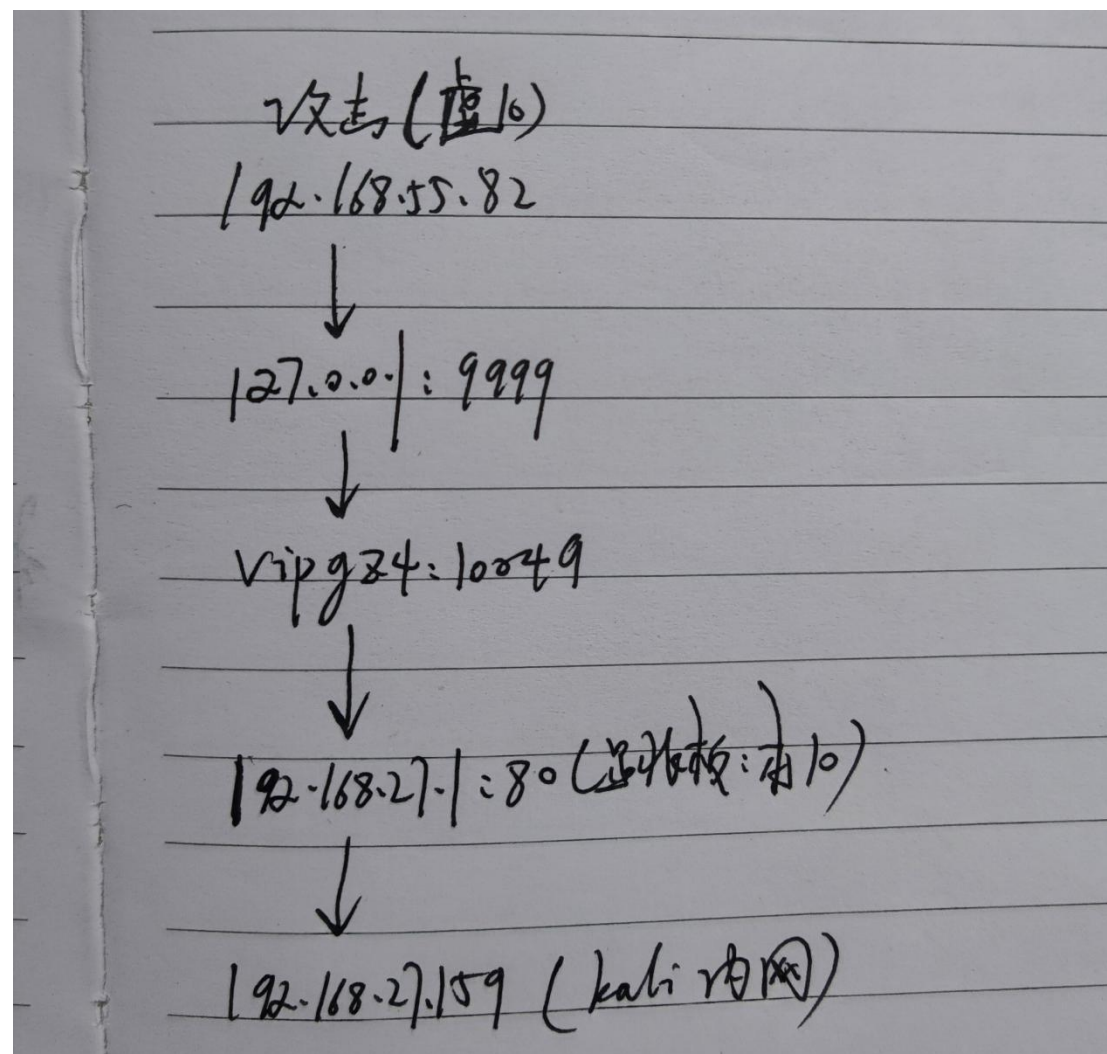 攻击(虚10)
192.168.55.82
↓
127.0.0.1:9999
↓
vipgz4:10049
↓
192.168.27.1:80(跳板:本10)
↓
192.168.27.159(kali内网)